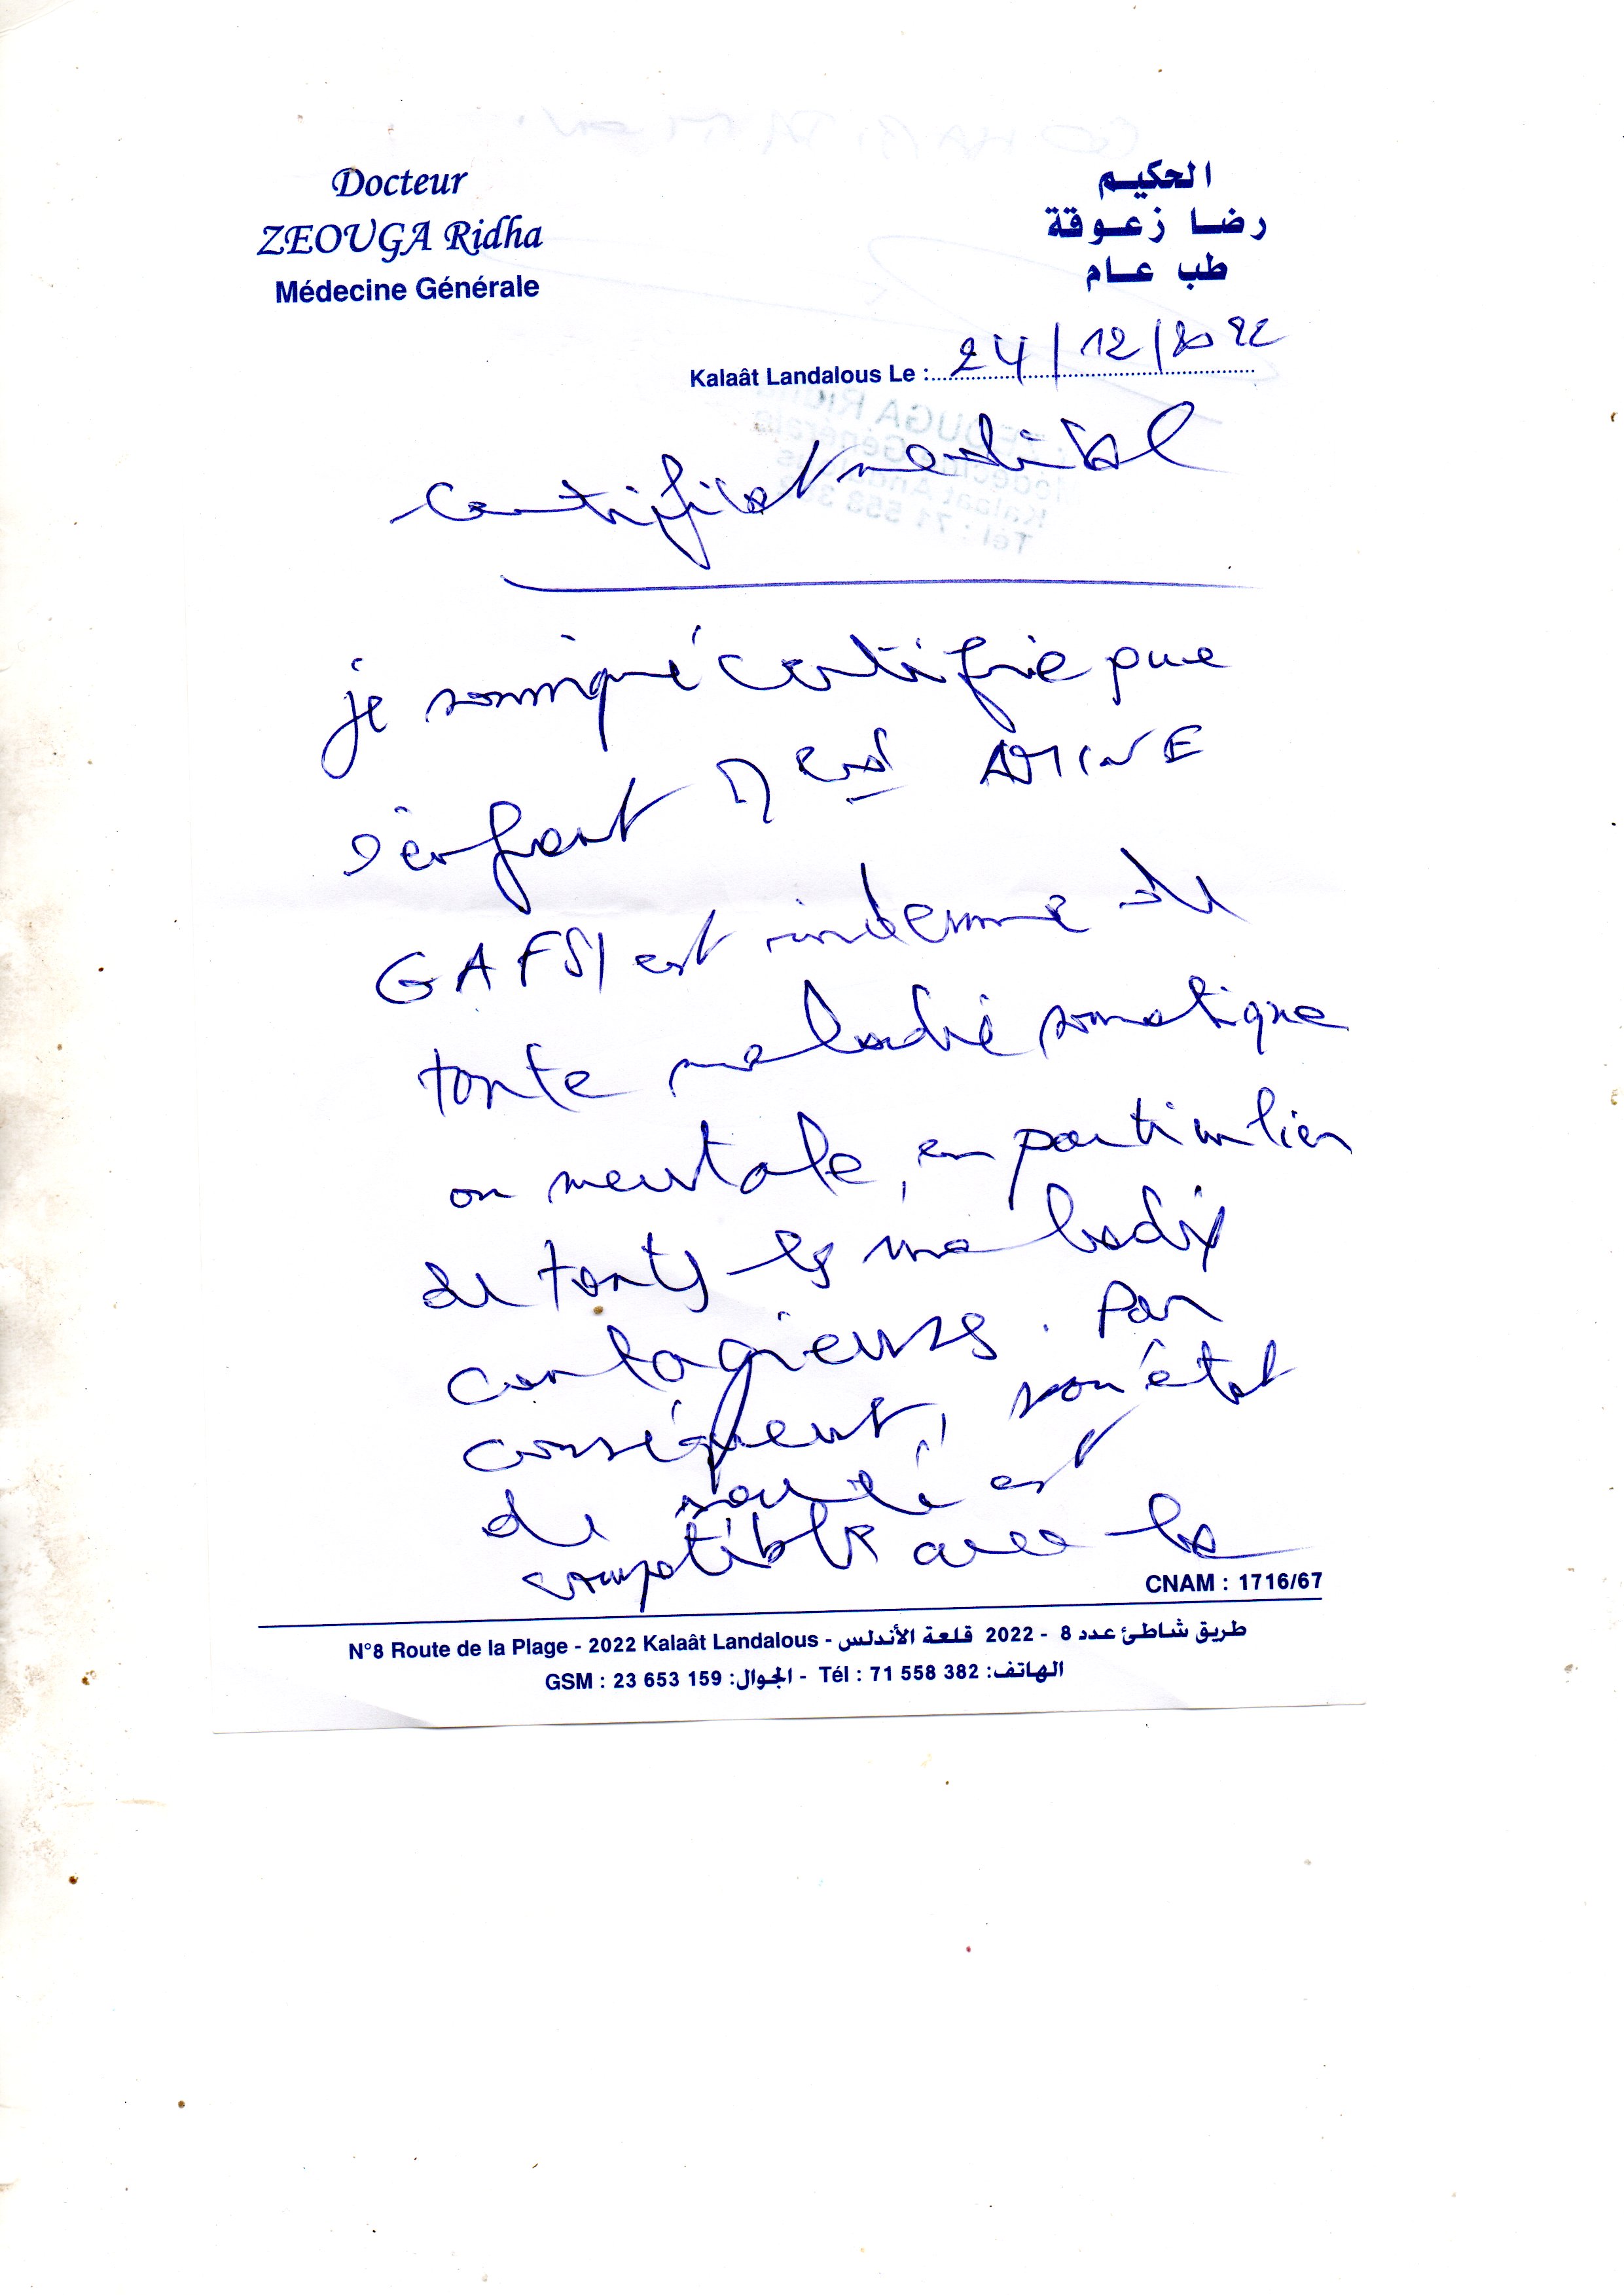 Docteur
ZEOUGA Ridha
Médecine Générale
الحكيم
رضا زعوقة
طب عام
Kalaât Landalous Le : 24/12/2022
certificat médical
je soussigné certifie que
l'enfant Med AMINE
GAFSI est indemne de
toute maladie somatique
ou mentale, en particulier
de toutes les maladies
contagieuses. Par
conséquent, son état
de santé est
compatible avec la
CNAM : 1716/67
N°8 Route de la Plage - 2022 Kalaât Landalous - طريق شاطئ عدد 8 - 2022 قلعة الأندلس
GSM : 23 653 159 :الجوال - Tél : 71 558 382 :الهاتف